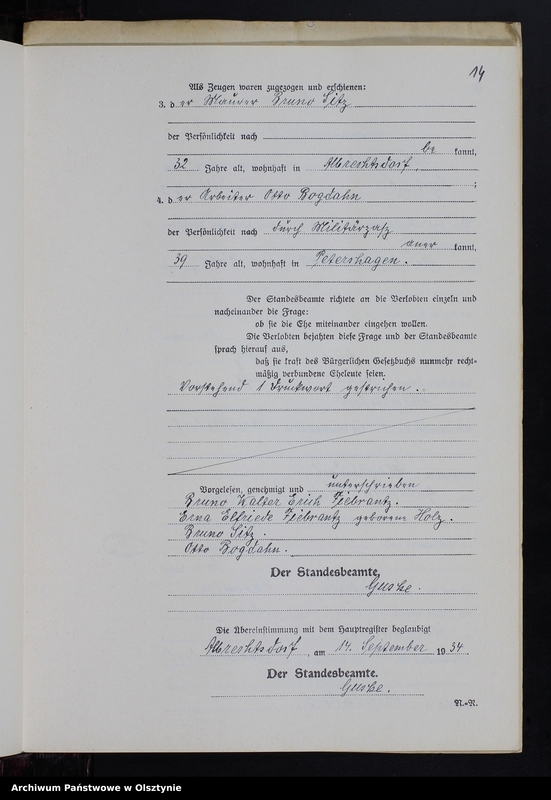 14
Als Zeugen waren zugezogen und erschienen:
3. der Maurer Bruno Sitz
der Persönlichkeit nach
be kannt,
32 Jahre alt, wohnhaft in Albrechtsdorf,
;
4. der Arbeiter Otto Bogdahn
der Persönlichkeit nach durch Militärpaß
aner kannt,
39 Jahre alt, wohnhaft in Petershagen.
Der Standesbeamte richtete an die Verlobten einzeln und
nacheinander die Frage:
ob sie die Ehe miteinander eingehen wollen.
Die Verlobten bejahten diese Frage und der Standesbeamte
sprach hierauf aus,
daß sie kraft des Bürgerlichen Gesetzbuchs nunmehr recht-
mäßig verbundene Eheleute seien.
Vorstehend 1 Druckwort gestrichen.
Vorgelesen, genehmigt und unterschrieben
Bruno Walter Erich Ziebrantz.
Erna Elfriede Ziebrantz geborene Holz.
Bruno Sitz.
Otto Bogdahn.
Der Standesbeamte,
Guske.
Die Übereinstimmung mit dem Hauptregister beglaubigt
Albrechtsdorf, am 14. September 1934.
Der Standesbeamte.
Guske.
N.-R.
Archiwum Państwowe w Olsztynie